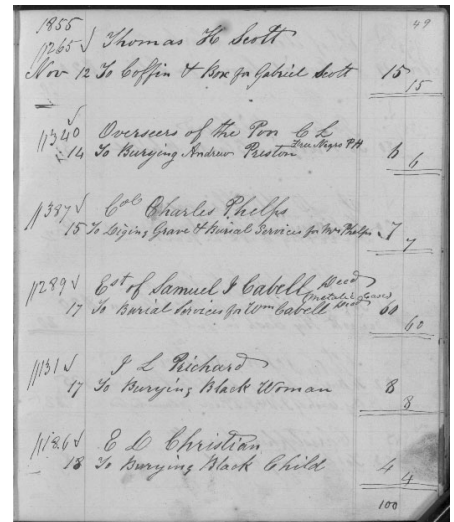 1855 49
1265 √ Thomas H Scott
Nov 12 To Coffin & Box for Gabriel Scott 15
15
√
1340 Overseers of the Poor C L
14 To Burying Andrew Preston Free Negro PH 6
6
1397 √ Col Charles Phelps
15 To Diging Grave & Burial Services for Mrs Phelps 7
7
1289 √ Est of Samuel J Cabell Decd
(Metalic Case)
17 To Burial Services for Wm Cabell Decd 60
60
1131 √ J L Prichard
17 To Burying Black Woman 8
8
1186 √ E D Christian
18 To Burying Black Child 4
4
100